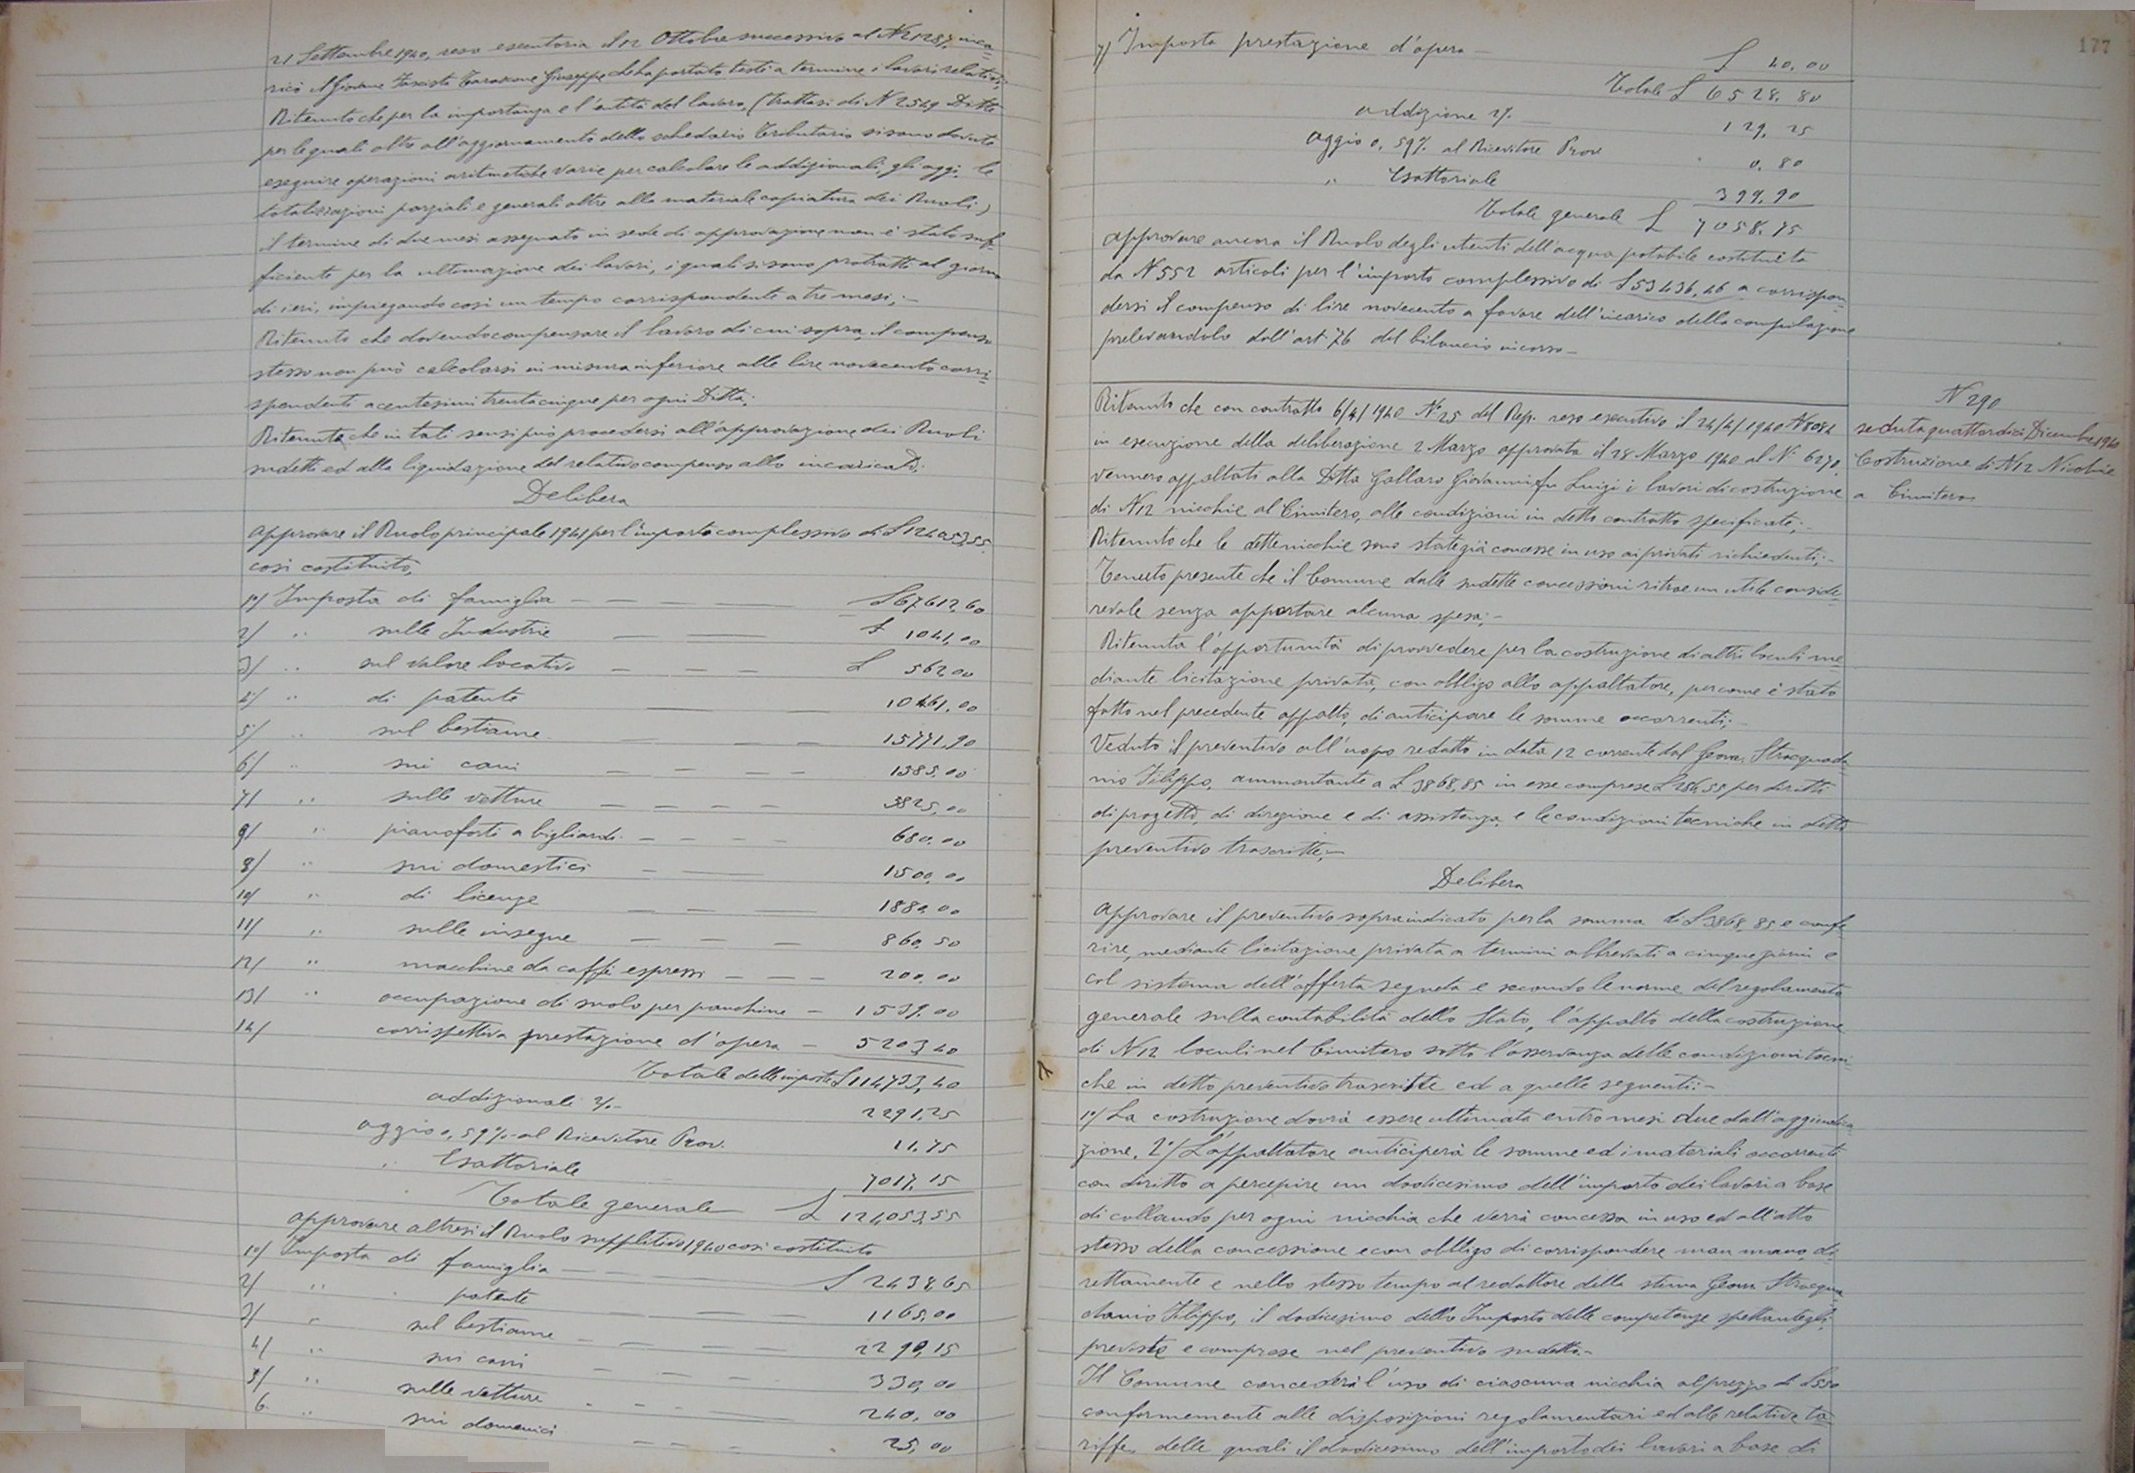 21 Settembre 1940, reso esecutoria il 12 Ottobre successivo al N 21287, inca-
ricò il Giovane Fascista Tarascone Giuseppe che ha portato testè a termine i lavori relativi;
Ritenuto che per la importanza e l'entità del lavoro, (trattasi di N 2549 Ditte
per le quali oltre all'aggiornamento dello schedario tributario si sono dovute
eseguire operazioni aritmetiche varie per calcolare le addizionali, gli aggi, le
totalizzazioni parziali e generali oltre alla materiale copiatura dei Ruoli)
il termine di due mesi assegnato in sede di approvazione non è stato suf-
ficiente per la ultimazione dei lavori, i quali si sono protratti al giorno
di ieri, impiegando così un tempo corrispondente a tre mesi;-
Ritenuto che dovendo compensare il lavoro di cui sopra, il compenso
stesso non può calcolarsi in misura inferiore alle lire novecento corri-
spondenti a centesimi trentacinque per ogni Ditta;
Ritenuto che in tali sensi può procedersi all'approvazione dei Ruoli
sudetti ed alla liquidazione del relativo compenso allo incaricato;
Delibera
Approvare il Ruolo principale 1941 per l'importo complessivo di £ 124053,55
così costituito,
1°/ Imposta di famiglia — £ 67612,60
2/ " sulle Industrie — £ 1041,00
3/ " sul valore locativo — £ 562,00
4/ " di patente — 10461,00
5/ " sul bestiame — 15771,90
6/ " sui cani — 1385,00
7/ " sulle vetture — 3825,00
8/ " pianoforti a bigliardi — 680,00
9/ " sui domestici — 1500,00
10/ " di licenze — 1880,00
11/ " sulle insegne — 860,50
12/ " macchine da caffè espressi — 200,00
13/ " occupazione di suolo per panchine — 1539,00
14/ corrispettiva prestazione d'opera — 5203,40
Totale delle imposte £ 114733,40
addizionali 2%- 2291,25
aggio 0,59% al Ricevitore Prov. 11,75
" Esattoriale 7017,15
Totale generale £ 124053,55
approvare altresì il Ruolo suppletivo 1940 così costituito
1°/ Imposta di famiglia — £ 2438,65
2/ " patente — 1165,00
3/ " sul bestiame — 2290,15
4/ " sui cani — 330,00
5/ " sulle vetture — 240,00
6 " sui domestici — 25,00
177
7/ Imposta prestazione d'opera — £ 40,00
Totale £ 6528,80
addizione 2%. — 129,25
Aggio 0,59% al Ricevitore Prov 0,80
" Esattoriale 399,90
Totale generale £ 7058,75
approvare ancora il Ruolo degli utenti dell'acqua potabile costituito
da N 552 articoli per l'importo complessivo di £ 53436,46 a corrispon-
dersi il compenso di lire novecento a favore dell'incarico della compilazione
prelevandolo dall'art. 76 del bilancio in corso—
N 290
seduta quattordici Dicembre 1940
Costruzione di N 12 Nicchie
a Cimitero
Ritenuto che con contratto 6/4/1940 N° 25 del Rep. reso esecutivo il 24/4/1940 N 8082
in esecuzione della deliberazione 2 Marzo approvata il 28 Marzo 1940 al N° 6270
vennero appaltati alla Ditta Gallaro Giovanni fu Luigi i lavori di costruzione
di N 12 nicchie al Cimitero, alle condizioni in detto contratto specificate;-
Ritenuto che le dette nicchie sono state già concesse in uso ai privati richiedenti;-
Tenuto presente che il Comune dalle sudette concessioni ritrae un utile conside-
revole senza apportare alcuna spesa;-
Ritenuta l'opportunità di provvedere per la costruzione di altri loculi me-
diante licitazione privata, con obbligo allo appaltatore, per come è stato
fatto nel precedente appalto, di anticipare le somme occorrenti;-
Veduto il preventivo all'uopo redatto in data 12 corrente dal Geom. Stracquada-
nio Filippo, ammontante a £ 3868,85 in esse comprese £ 286,55 per diritti
di progetto, di direzione e di assistenza, e le condizioni tecniche in detto
preventivo trascritte;-
Delibera
Approvare il preventivo sopraindicato per la somma di £ 3868,85 e confe-
rire, mediante licitazione privata a termini abbreviati a cinque giorni e
col sistema dell'offerta segreta e secondo le norme del regolamento
generale sulla contabilità dello Stato, l'appalto della costruzione
di N 12 loculi nel Cimitero sotto l'osservanza delle condizioni tecni-
che in detto preventivo trascritte ed a quelle seguenti:-
1°/ La costruzione dovrà essere ultimata entro mesi due dall'aggiudica-
zione. 2°/ L'appaltatore anticiperà le somme ed i materiali occorrenti
con diritto a percepire un dodicesimo dell'importo dei lavori a base
di collaudo per ogni nicchia che verrà concessa in uso ed all'atto
stesso della concessione e con obbligo di corrispondere man mano, di-
rettamente e nello stesso tempo al redattore della stima Geom. Stracqua
danio Filippo, il dodicesimo dello Importo delle competenze spettantegli,
previste e comprese nel preventivo sudetto.-
Il Comune concederà l'uso di ciascuna nicchia al prezzo di £ 550
conformemente alle disposizioni regolamentari ed alle relative ta-
riffe, delle quali il dodicesimo dell'importo dei lavori a base di